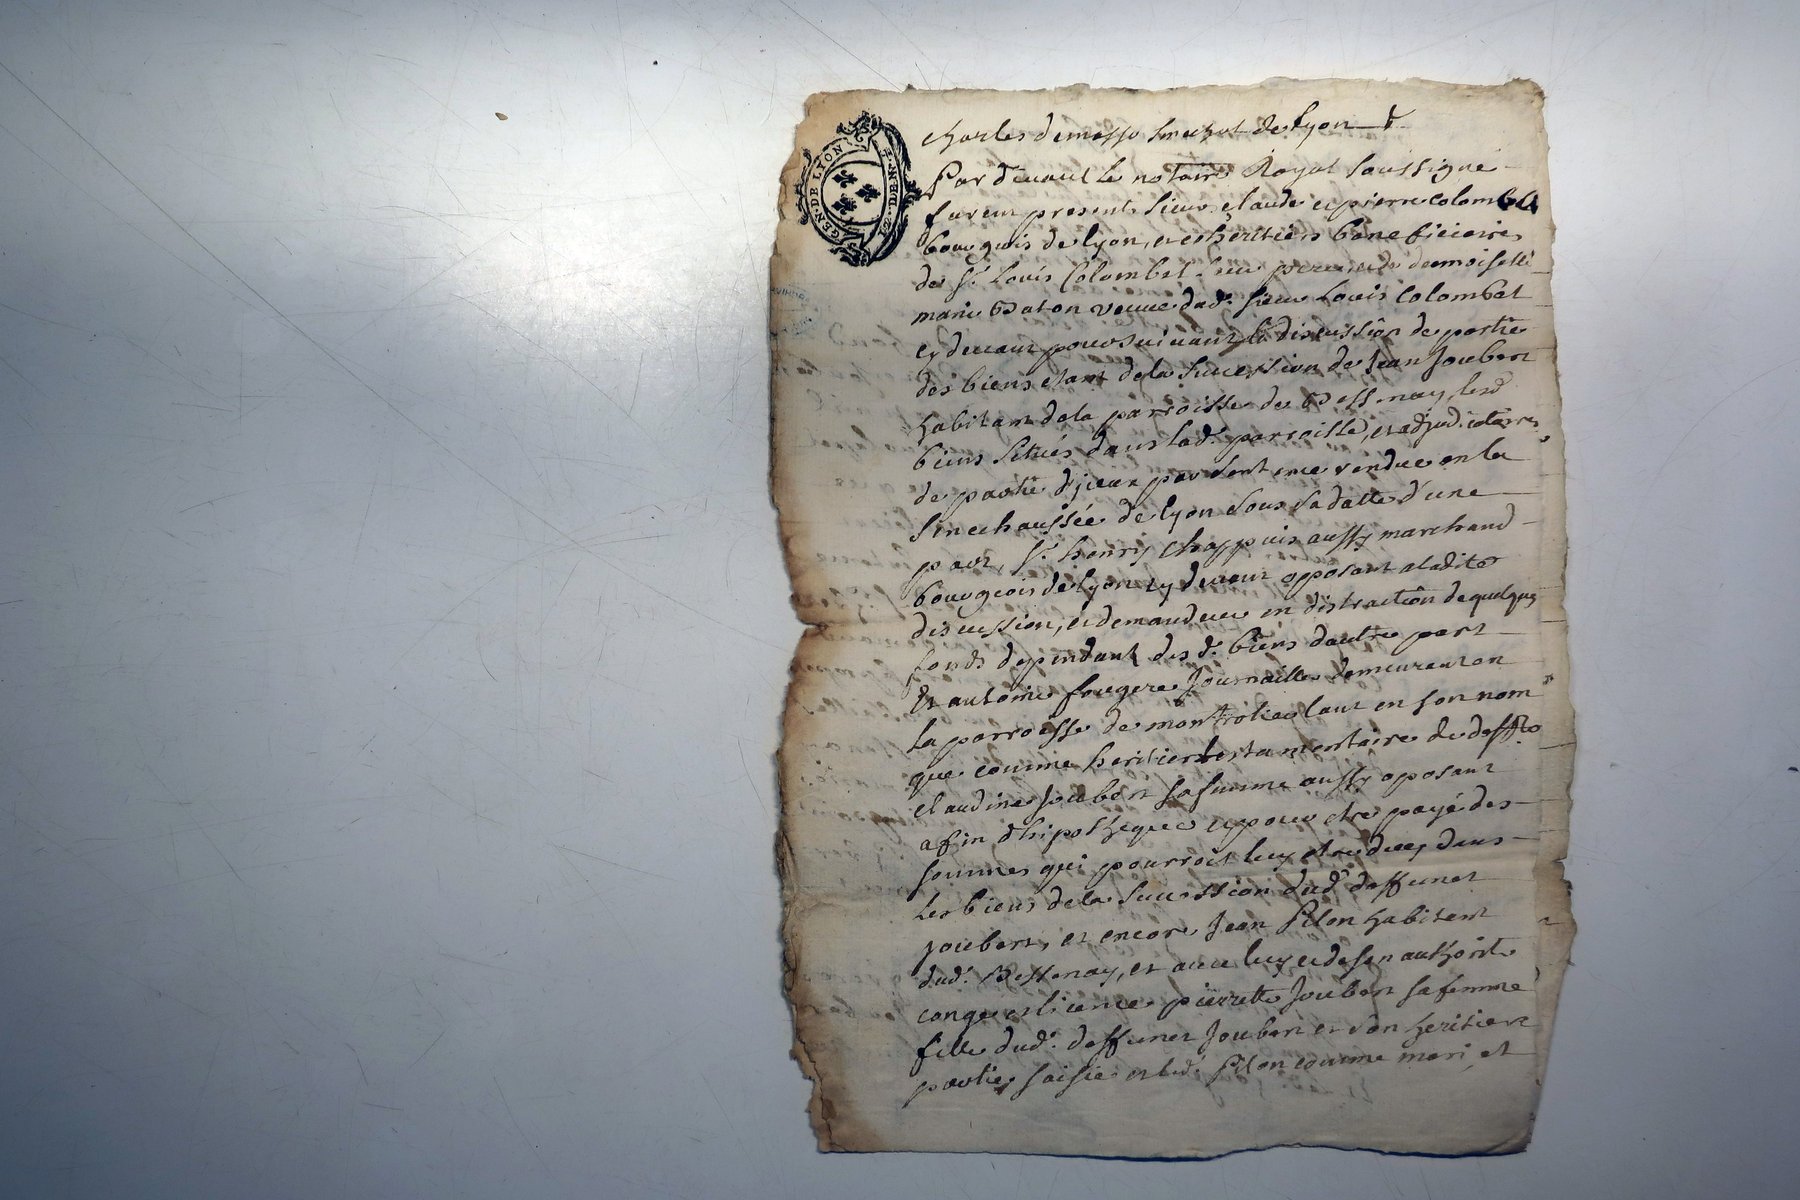 GEN. DE LYON
Charles de messo
de Lyon
Par devant le notaire Royal soussigné
furent presents sieurs claude et pierre colombet
bourgois de lyon, et heritiers beneficieires
de Sr. Louis Colombet leur pere et de demoiselle
marie veuve dud. sieur Louis Colombet
cy devant poursuivant la discussiôn de partie
des biens etant de la succession de Jean Joubert
habitant de la parroisse de Bessenay, lesd
biens situés dans lad. parroisse, et adjudicataires
de partie d'jceux par sentence rendue en la
senechaussée de lyon sous sa datte d'une
part, Sr. henry Chappuis aussy marchand
bourgeois de lyon cy devant oposant a ladite
discussion, et demandeur en distractiôn de quelques
fonds dependant des d. biens d'autre part
Et antoine fougere Journaillier demeurant en
la parroisse de montrotier tant en son nom
que comme heritier testamentaire de deffte
claudine Joubert sa femme aussy oposant
afin d'hipotheque et pour etre payé des
sommes qui pourroit luy etre dues dans
les biens de la succession dud. deffunct
Joubert, et encore Jean Pilon habitant
dud. Bessenay, et avec luy et de son authorité
conge et licence pierrette Joubert sa femme
fille dud. deffunct Joubert et son heritiere
partie saisie et led. Pilon comme mari, et